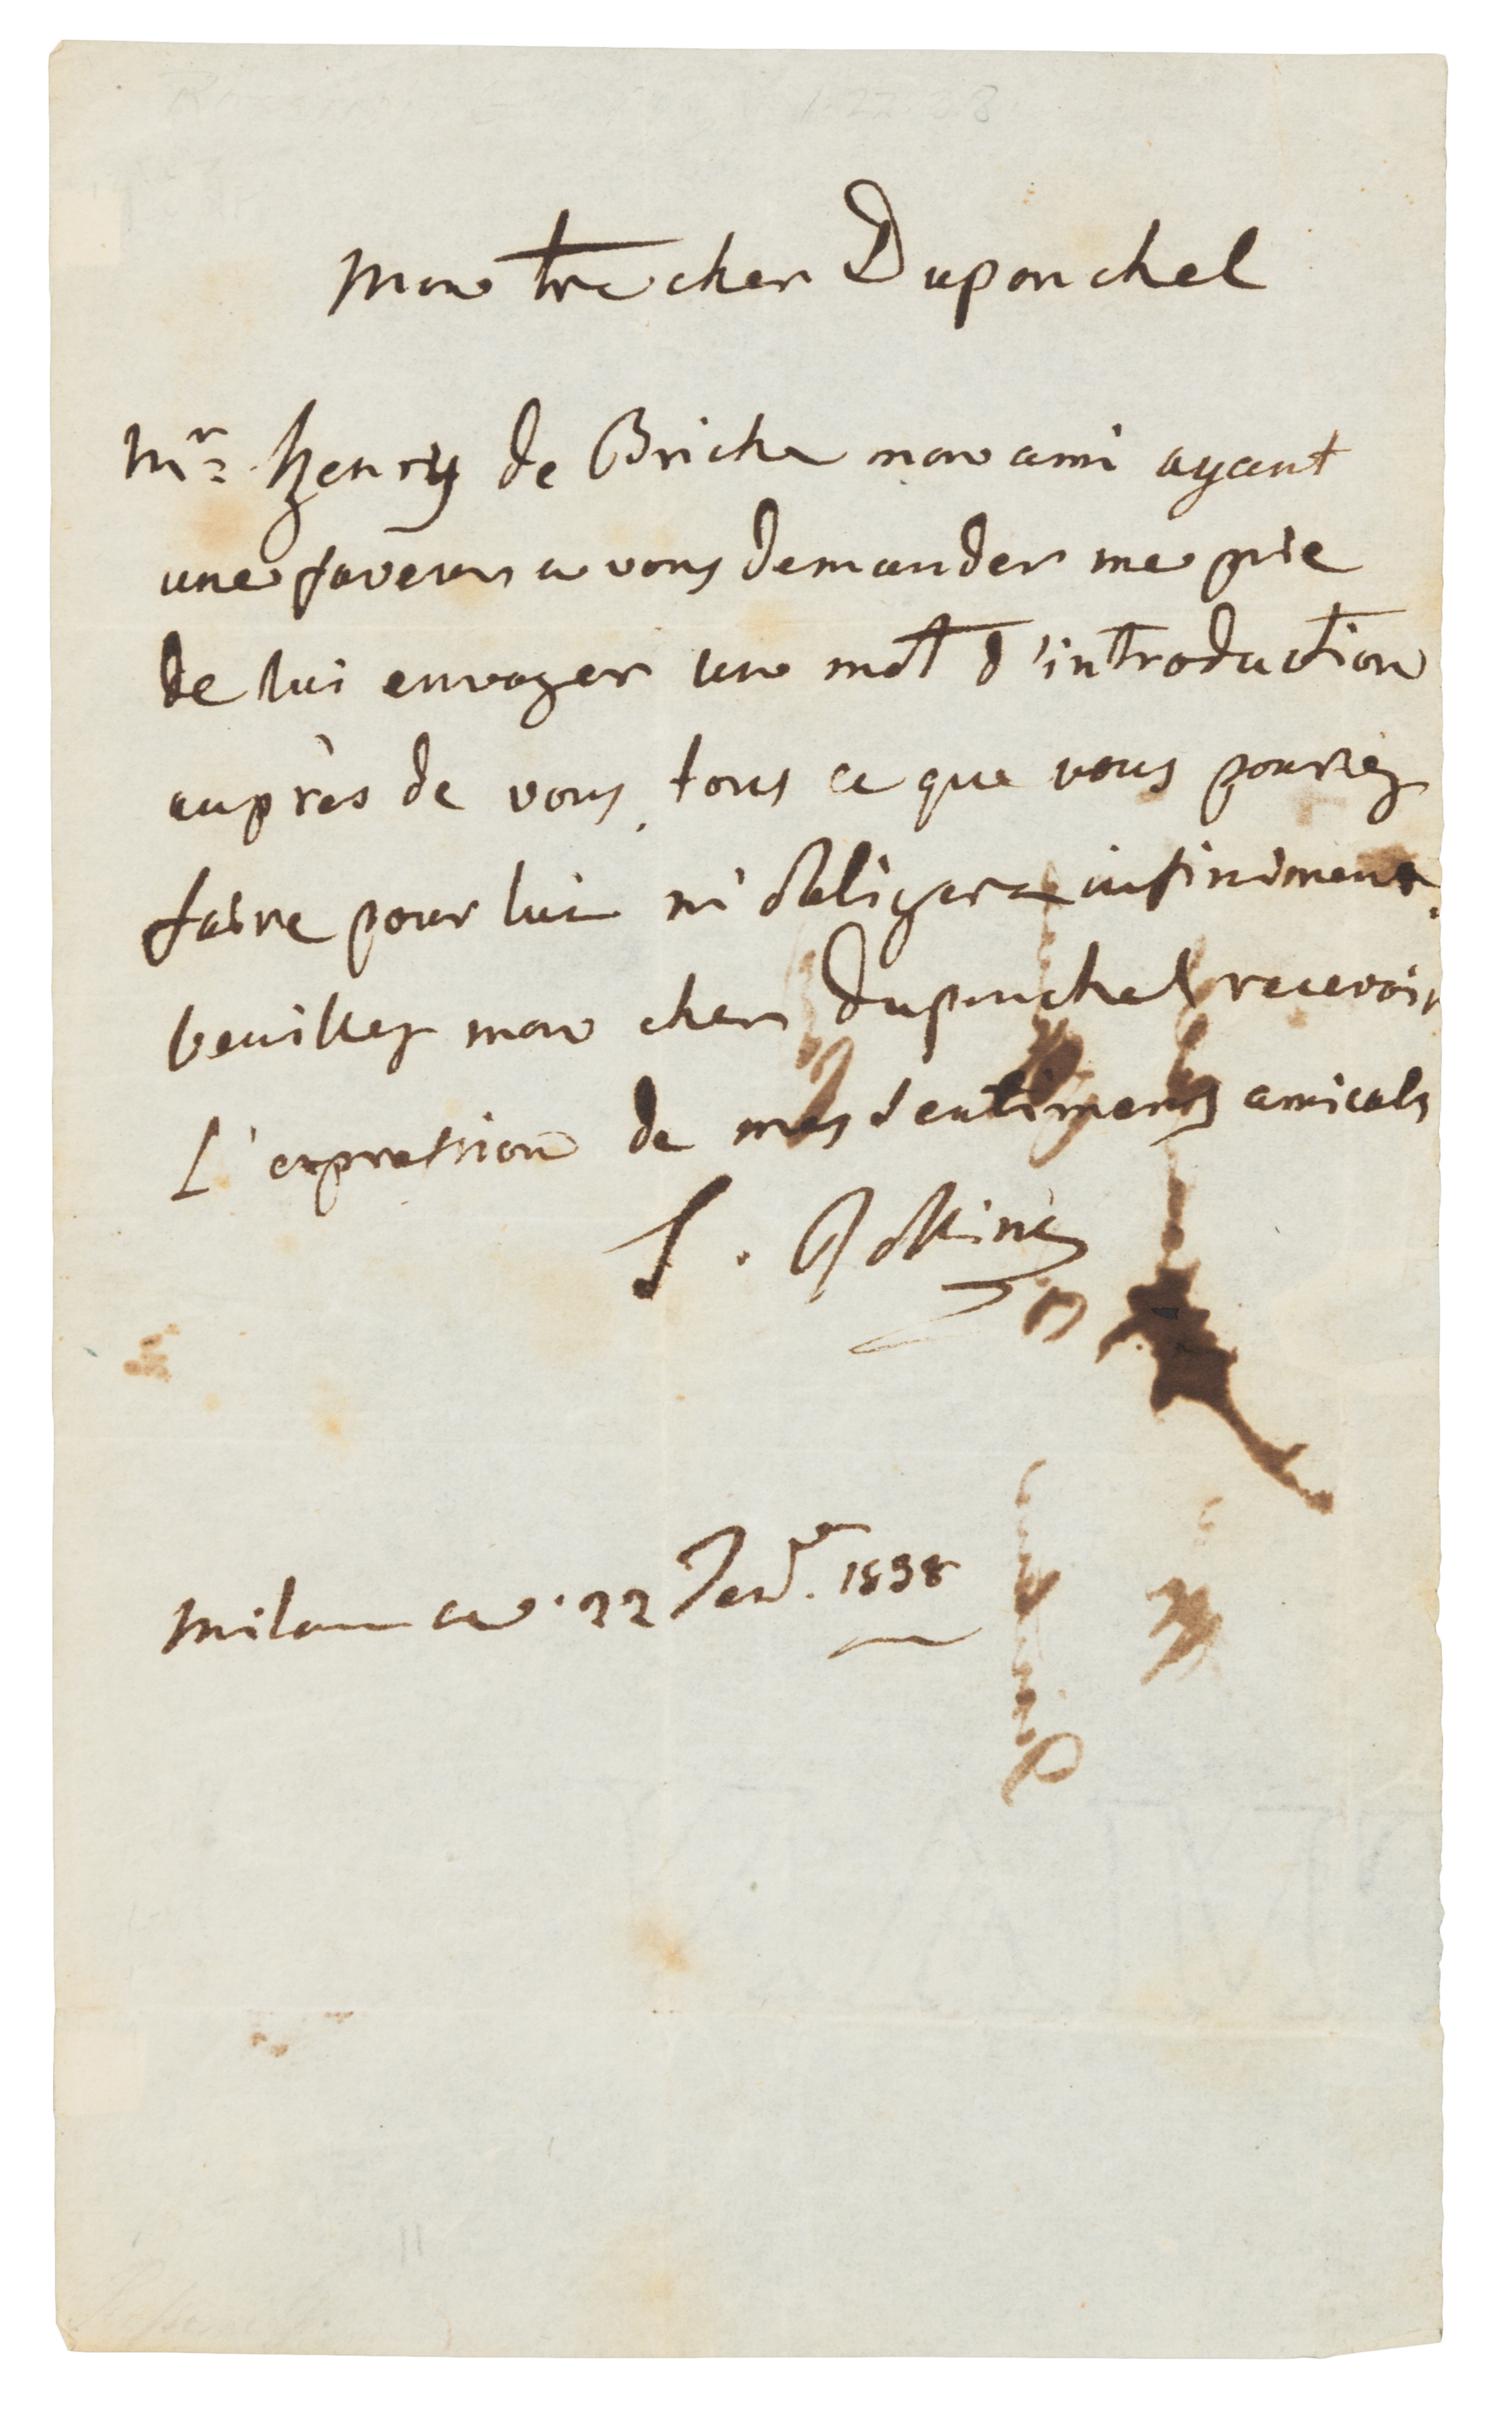 1-22-38
Mon tre cher Duponchel
Mr. henry de Briche mon ami ayant
une faveur a vous demander me prie
de lui envoyer un mot d'introduction
auprès de vous, tous ce que vous pouriez
faire pour lui m'obligera infiniment.
Veuillez mon cher duponchel recevoir
L'expression de mes sentiments amicals
Milan ce 22 1838
11